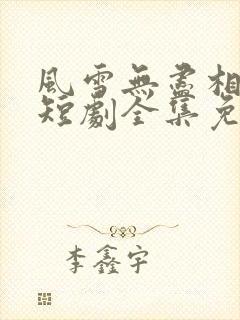 風雪無盡相
短劇全集免
李鑫宇